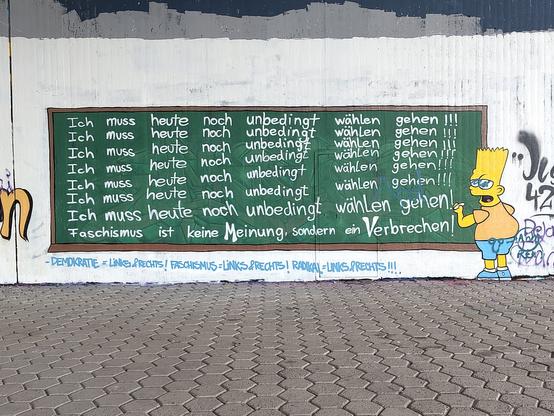 Ich muss heute noch unbedingt wählen gehen!!!
Ich muss heute noch unbedingt wählen gehen!!!
Ich muss heute noch unbedingt wählen gehen!!!
Ich muss heute noch unbedingt wählen gehen!!!
Ich muss heute noch unbedingt wählen gehen!!!
Ich muss heute noch unbedingt wählen gehen!
Faschismus ist keine Meinung, sondern ein Verbrechen!
- DEMOKRATIE = LINKS & RECHTS! FASCHISMUS = LINKS & RECHTS! RADIKAL = LINKS & RECHTS!!!
42